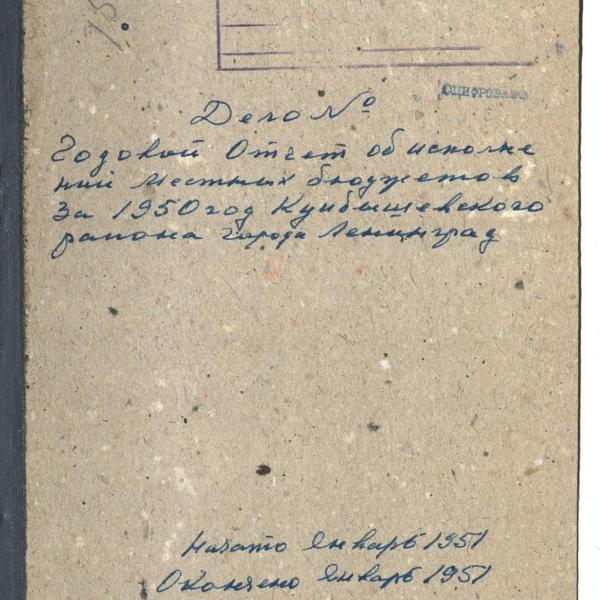 ОЦИФРОВАНО
Дело №
Годовой Отчет об исполне
нии местных бюджетов
За 1950 год Куйбышевского
района города Ленинград
Начато Январь 1951
Окончено Январь 1951